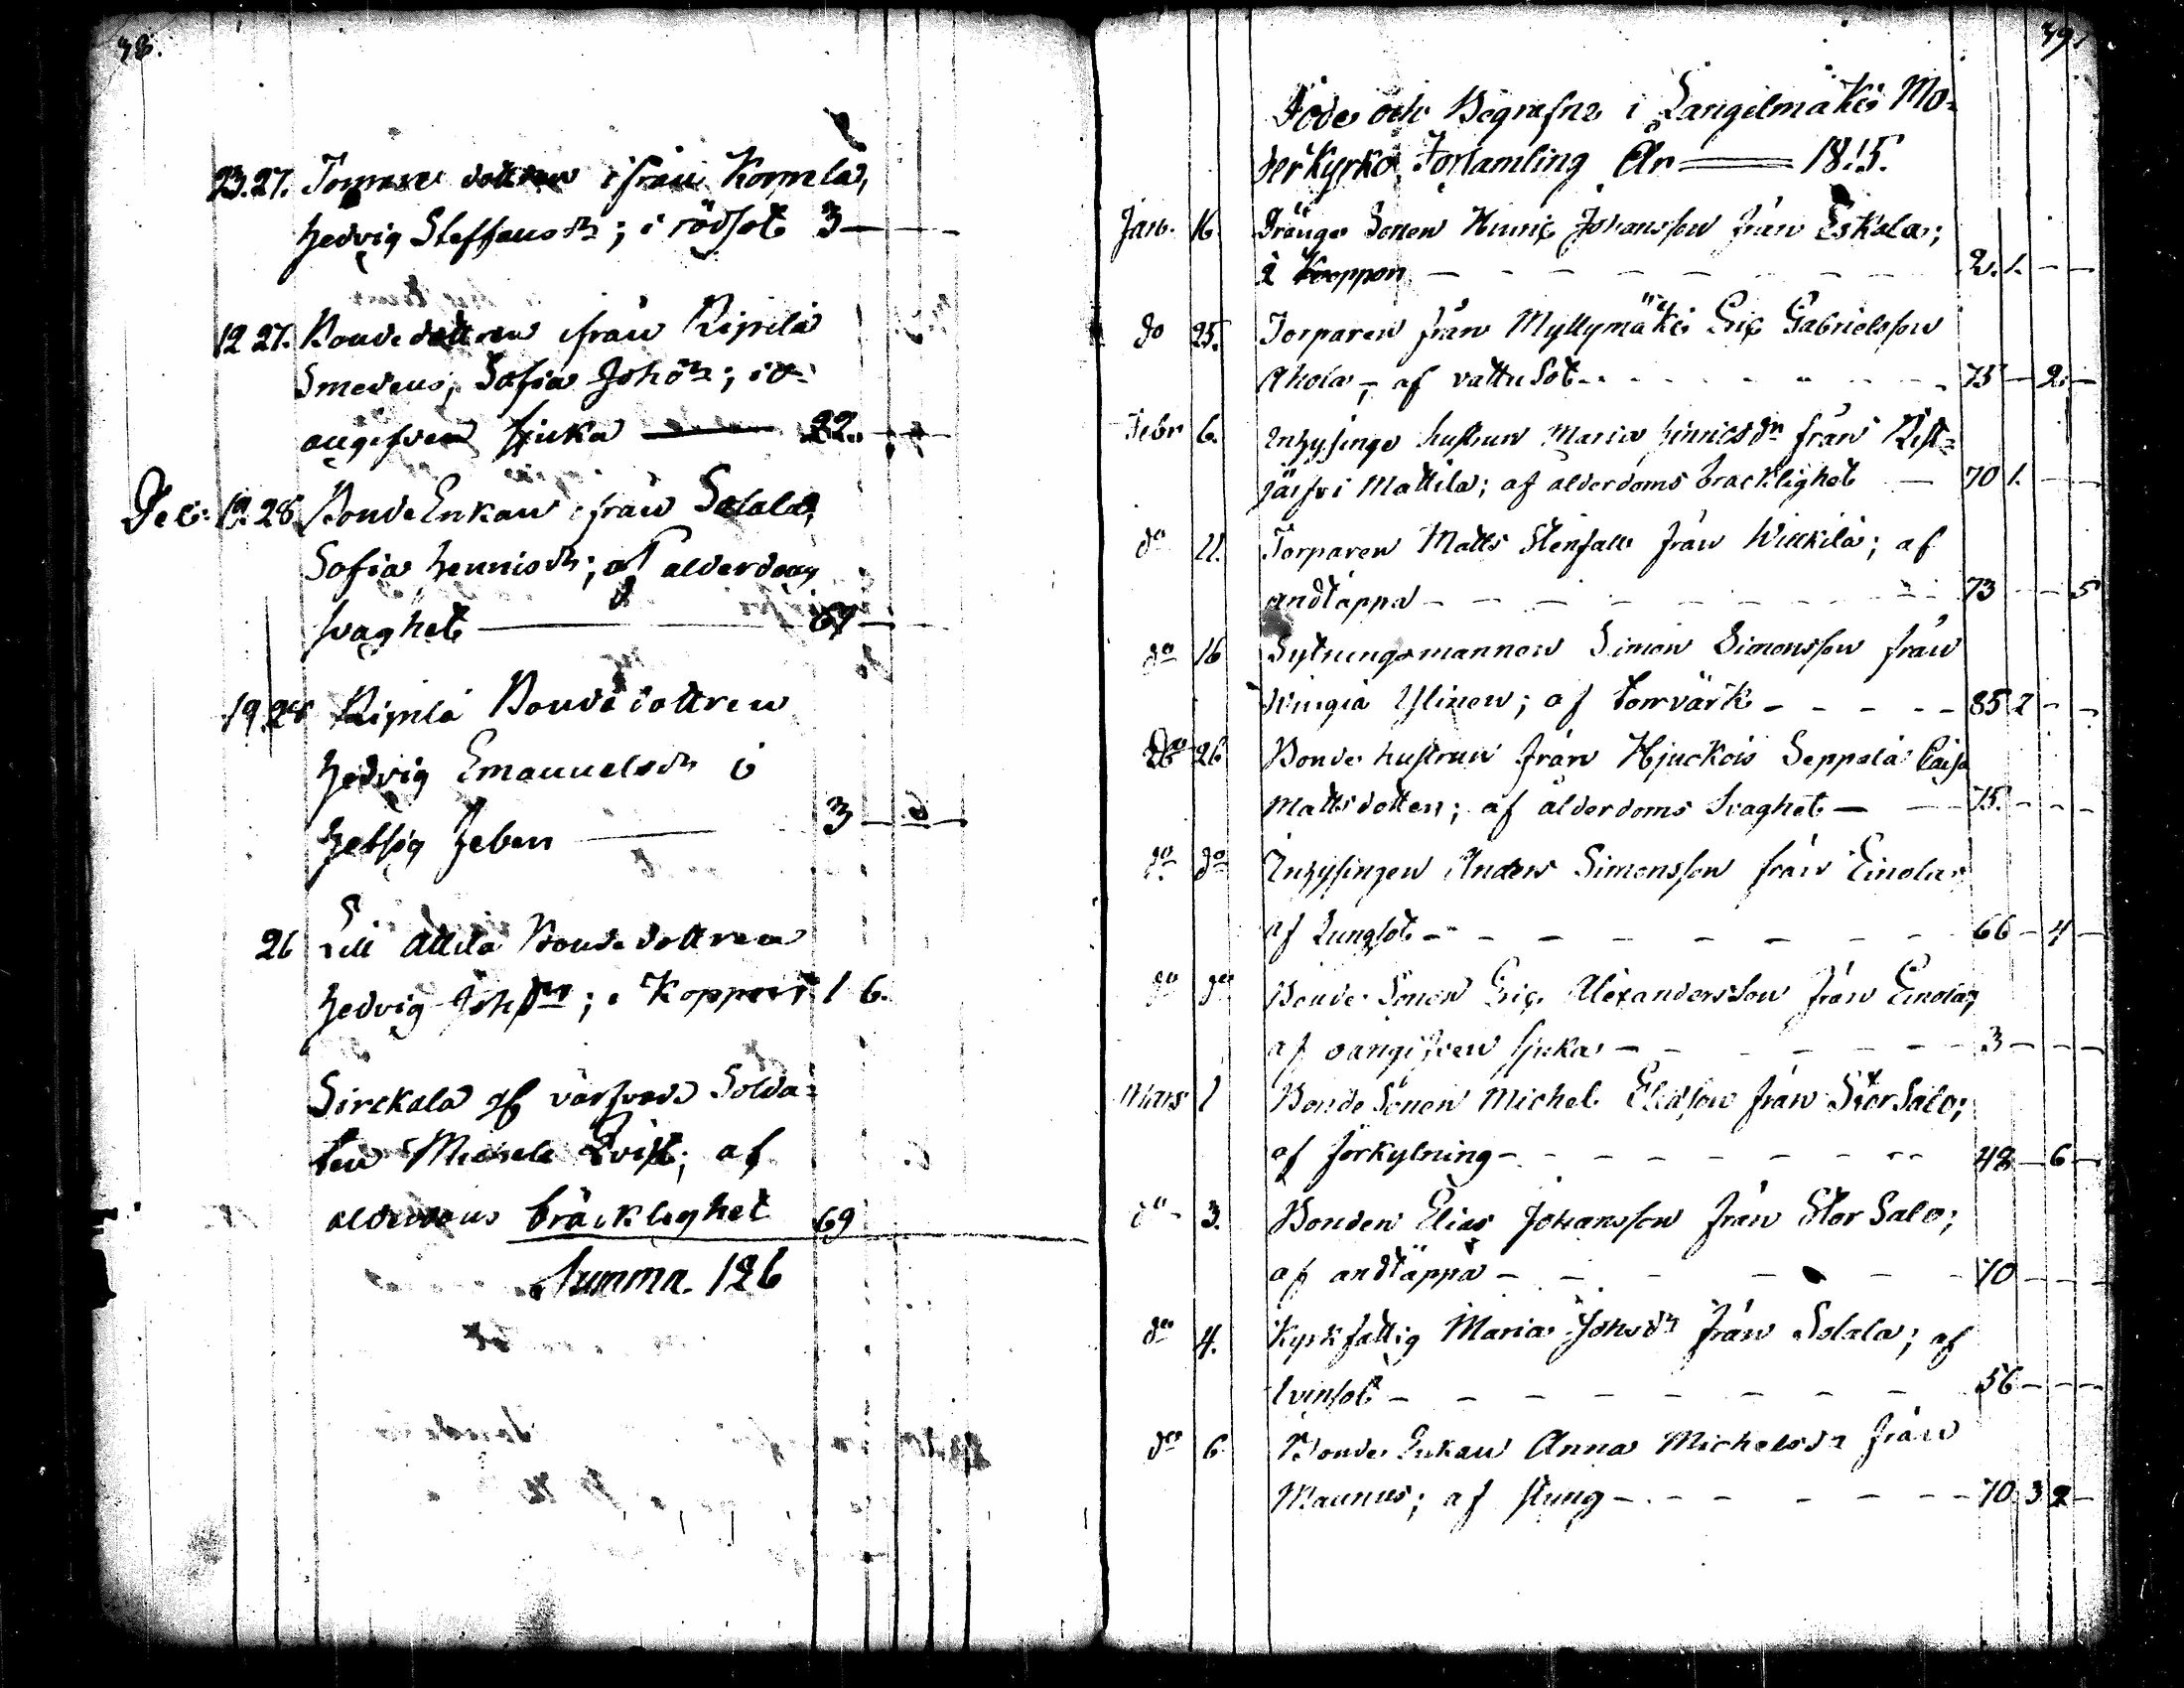 48.
23. 27. Torpare dottren ifrån Kornela,
Hedvig Steffansdr; i rödsot 3 — —
12 27. Bonde dottren ifrån Ripila
Smedens, Sofia Johdr; i o=
angifven sjuka — 22. — —
Dec: 19. 28. Bonde Enkan ifrån Solala,
Sofia Hennisdr; af alderdoms
svaghet — 67 — —
19. 28 Ripila Bonde dottren
Hedvig Emanuelsdr i
hetsig feber — 3 — —
26 Lill Attila Bonde dottren
Hedvig Johdr; i Koppor 1 6.
Sirckala värfvade Solda=
ten Michel Qvist; af
alderdoms bräcklighet 69
Summa. 126
49.
Döde och Begrafne i Längelmäki Mo=
derkyrko Församling År — 1815.
Janv. 16. Dränge Sonen Hinric Johansson från Eskola;
i Koppon — 2. 1. — —
do 25. Torparen från Myllymäki Eric Gabrielsson
Ahola, af vattusot — 75 — 2. —
Febr 6. Inhysinge hustrun Maria Hinricsdr från Rist=
järfvi Mattila; af ålderdoms bräcklighet — 70 1. — —
do 11. Torparen Matts Stenfatt från Wilkilä; af
andtäppa — 73 — — 5
do 16 Sytningsmannen Simon Simonsson från
Wingia Ylinen; af torrvärk — 85 2 — —
Do 26 Bonde hustrun från Hjuckois Seppälä Caisa
Mattsdotter; af ålderdoms svaghet — 75. — — —
do do Inhysingen Anders Simonsson från Einola
af Lungsot — 66 — 4 —
do do Bonde Sonen Eric Alexandersson från Einola,
af oangifven sjuka — 3 — — —
Mars 1 Bonde Sonen Michel Eliasson från Stor Salo;
af förkylning — 48 — 6 —
do 3. Bonden Elias Johansson från Stor Salo;
af andtäppa — 70 — — —
do 4. Kyrkfattig Maria Johsdr från Solala; af
tvinsot — 56 — — —
do 6 Bonde Enkan Anna Michelsdr från
Maunus; af styng — 70 3 2 —